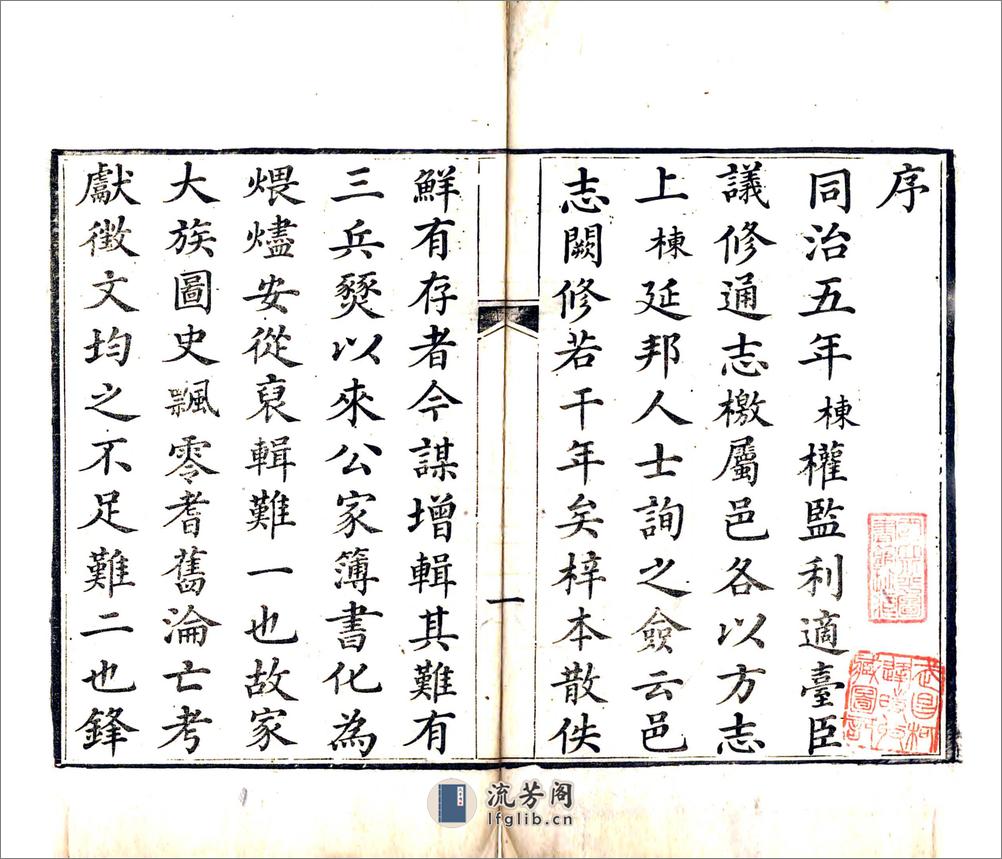 序
同治五年棟權監利適臺臣
議修通志檄屬邑各以方志
上棟延邦人士詢之僉云邑
志闕修若干年矣梓本散佚
一
鮮有存者今謀增輯其難有
三兵燹以來公家簿書化為
煨燼安從裒輯難一也故家
大族圖史飄零耆舊淪亡考
獻徵文均之不足難二也鋒
武昌柯
逢時收
藏圖記
流芳阁
lfglib.cn